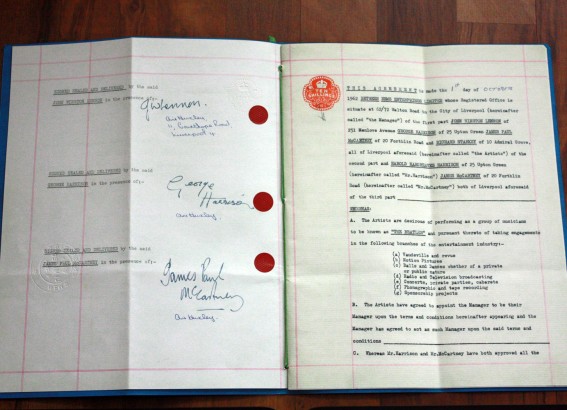 SIGNED SEALED AND DELIVERED by the said
JOHN WINSTON LENNON in the presence of:-
JWLennon.
Liverpool 4
SIGNED SEALED AND DELIVERED by the said
GEORGE HARRISON in the presence of:-
George
Harrison
SIGNED SEALED AND DELIVERED by the said
JAMES PAUL McCARTNEY in the presence of:-
James Paul
McCartney
TEN
SHILLINGS
THIS AGREEMENT is made the 1st day of OCTOBER
1962 BETWEEN NEMS ENTERPRISES LIMITED whose Registered Office is
situate at Walton Road in the City of Liverpool (hereinafter
called "the Manager") of the first part JOHN WINSTON LENNON of
251 Menlove Avenue GEORGE HARRISON of 25 Upton Green JAMES PAUL
McCARTNEY of 20 Forthlin Road and RICHARD STARKEY of 10 Admiral Grove,
all of Liverpool aforesaid (hereinafter called "the Artists") of the
second part and HAROLD HARGREAVES HARRISON of 25 Upton Green
(hereinafter called "Mr.Harrison") JAMES McCARTNEY of 20 Forthlin
Road (hereinafter called "Mr.McCartney") both of Liverpool aforesaid
of the third part
WHEREAS:
A. The Artists are desirous of performing as a group of musicians
to be known as "THE BEATLES" and pursuant thereto of taking engagements
in the following branches of the entertainment industry:-
(a) Vaudeville and revue
(b) Motion Pictures
(c) Balls and Dances whether of a private
or public nature
(d) Radio and Television broadcasting
(e) Concerts, private parties, cabarets
(f) Phonographic and tape recording
(g) Sponsorship projects
B. The Artists have agreed to appoint the Manager to be their
Manager upon the terms and conditions hereinafter appearing and the
Manager has agreed to act as such Manager upon the said terms and
conditions
C. Whereas Mr.Harrison and Mr.McCartney have both approved all the